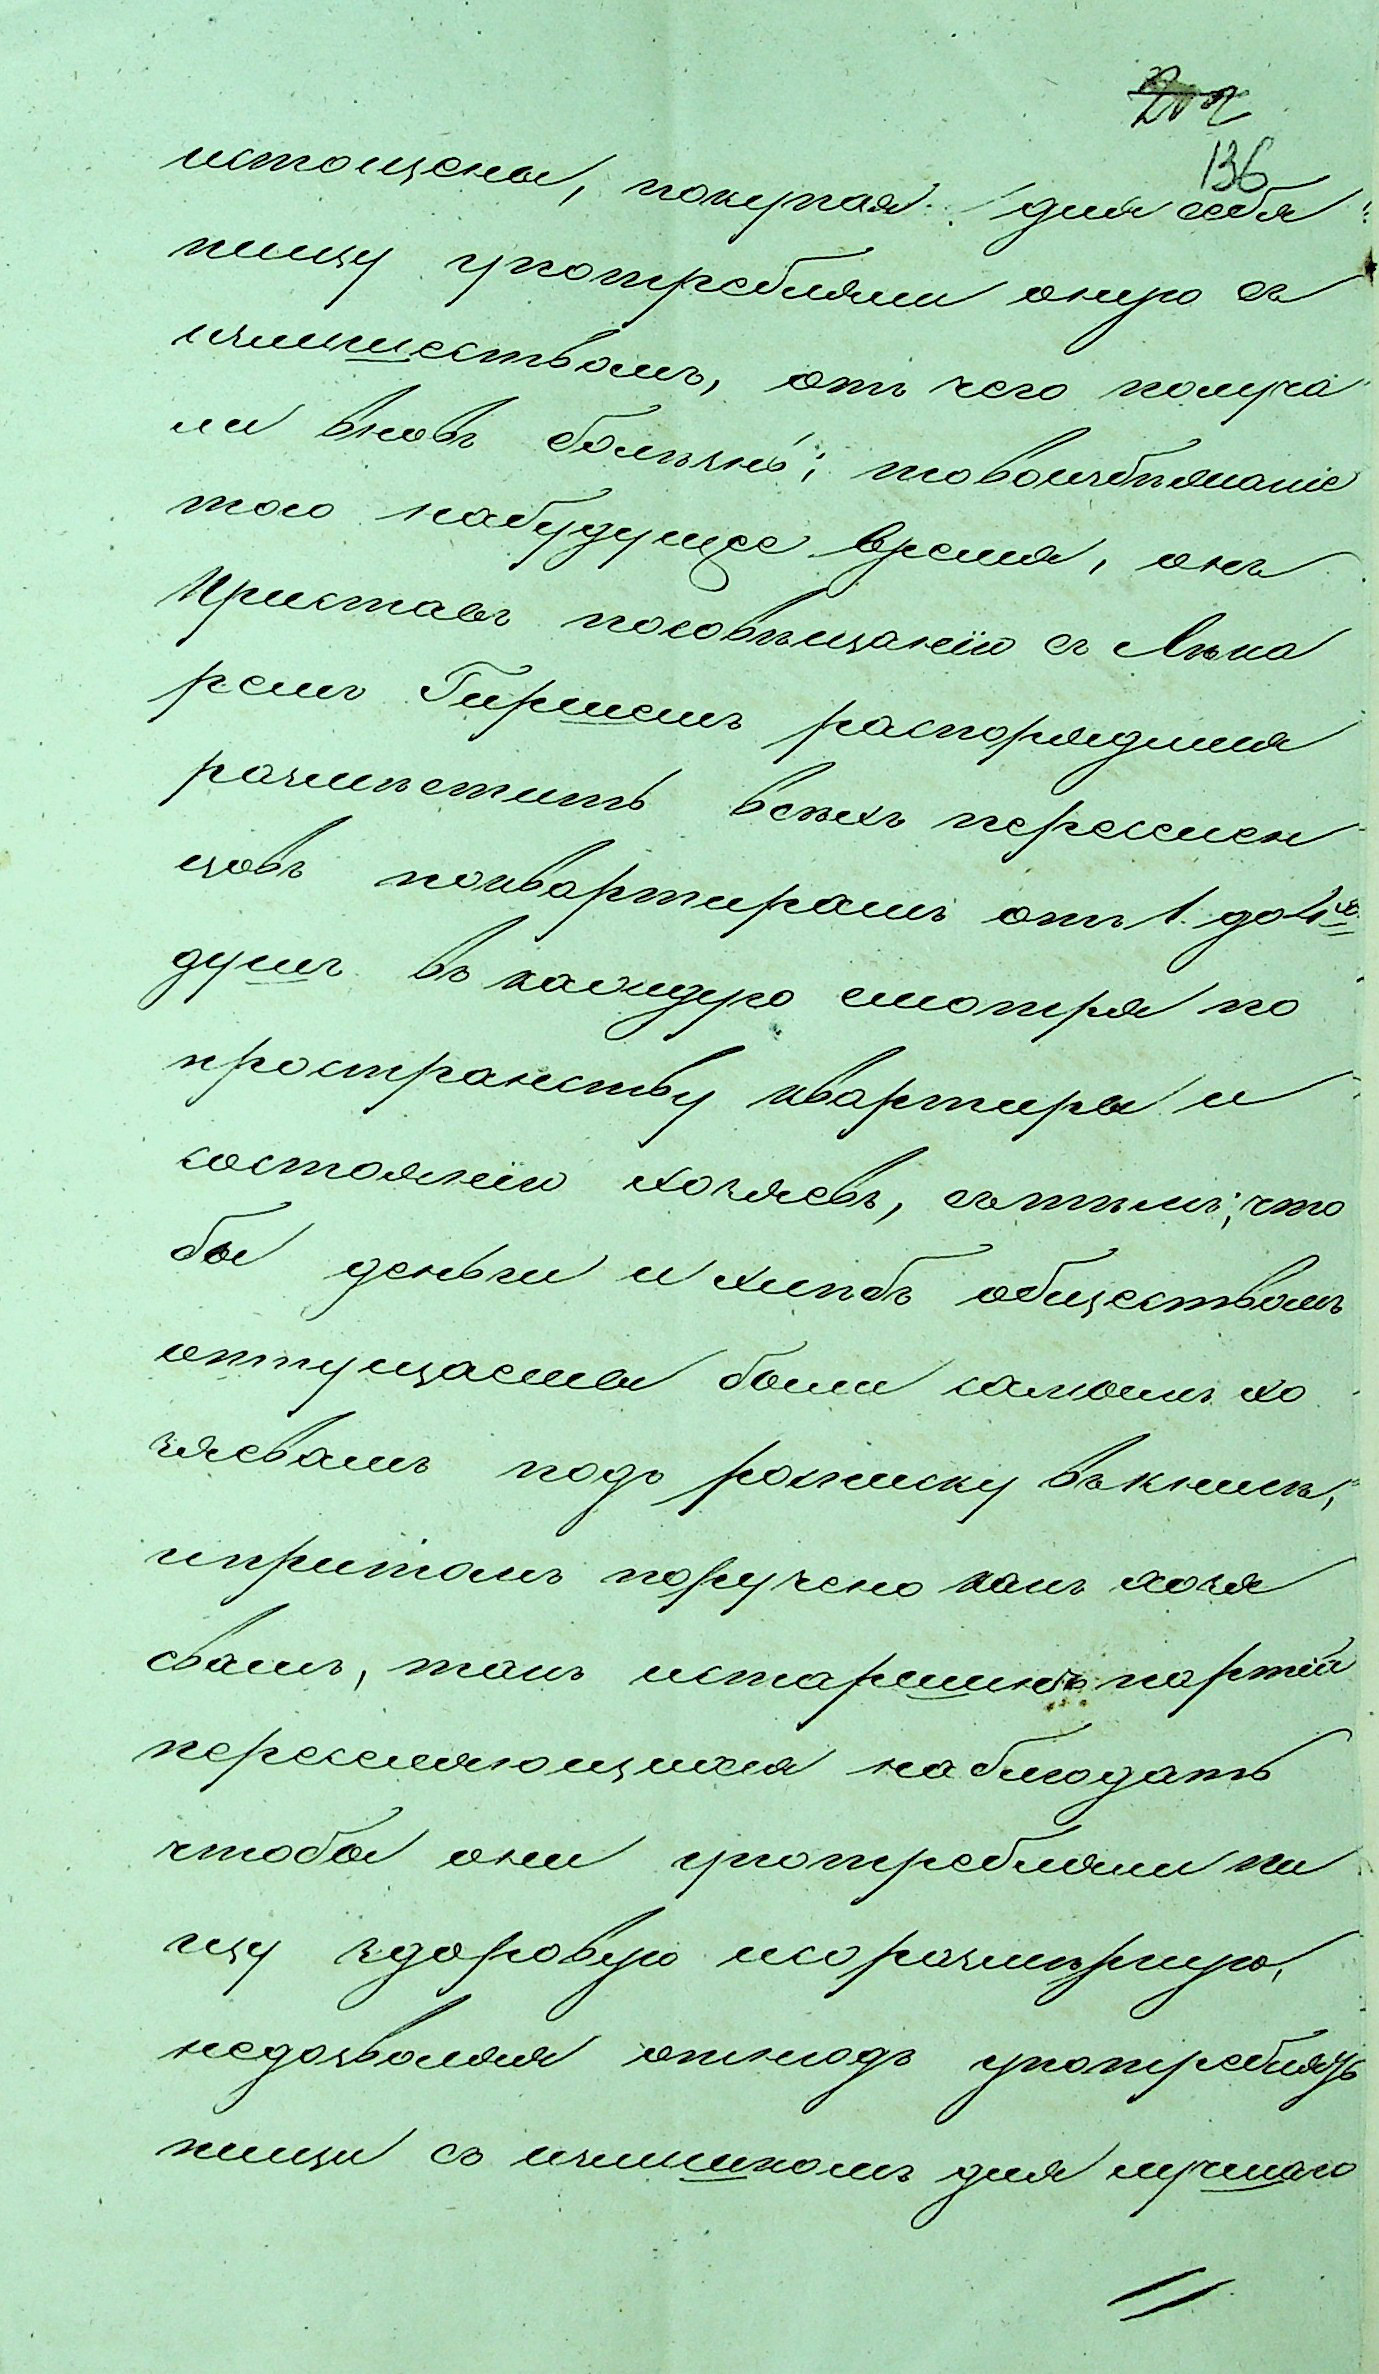 136
истощены, покупая для себя
пищу употребляли оную съ
излишествомъ, отъ чего получа
ли вновь болѣзнь; то воизбѣжаніе
того набудущее время, онъ
Приставъ посовѣщанію съ Лѣка
ремъ Гиршемъ распорядился
размѣстить всѣхъ переселен
цовъ поквартирамъ отъ 1. до 4хъ
душъ въ каждую смотря по
пространству квартиры и
состоянію хозяевъ, сътѣмъ, что
бы деньги и хлѣбъ обществомъ
отпущаемы были самимъ хо
зяевамъ подъ росписку въ книгѣ,
ипритомъ поручено какъ хозя
евамъ, такъ истаршинѣ партіи
переселяющихся наблюдать
чтобы они употребляли пи
щу здоровую исоразмѣрную,
недозволяя отнюдь употреблять
пищи съ излишкомъ для лучшаго